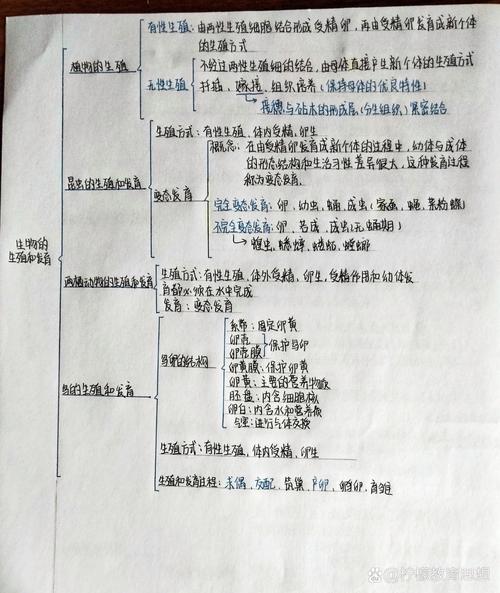 生物的
生殖和发育
植物的生殖
有性生殖：由两性生殖细胞结合形成受精卵，再由受精卵发育成新个体
的生殖方式
无性生殖
不经过两性生殖细的结合，由母体直接产生新个体的生殖方式
扦插、嫁接、组织培养（保持母体的优良特性）
接穗与砧木的形成层（分生组织）紧密结合
昆虫的生殖和发育
生殖方式：有性生殖、体内受精、卵生
变态发育
概念：在由受精卵发育成新个体的过程中，幼体与成体
的形态结构和生活习性差异很大，这种发育过程
称为变态发育.
完全变态发育：卵、幼虫、蛹、成虫（家蚕、蝇、菜粉蝶）
不完全变态发育：卵、若虫、成虫（无蛹期）
蝗虫、蟋蟀、蝼蛄、螳螂
两栖动物的生殖和发育
生殖方式：有性生殖，体外受精，卵生，受精作用和幼体发
育都必须在水中完成
发育：变态发育
鸟的生殖和发育
鸟卵的结构
系带：固定卵黄
卵壳
卵壳膜
保护鸟卵
卵黄膜：保护卵黄
卵黄：主要的营养物质
胚盘：内含细胞核
卵白：内含水和营养质
气室：进行气体交换
生殖方式：有性生殖、体内受精、卵生
生殖和发育过程：求偶、交配、筑巢、产卵、孵卵、育雏
柠檬教育思想